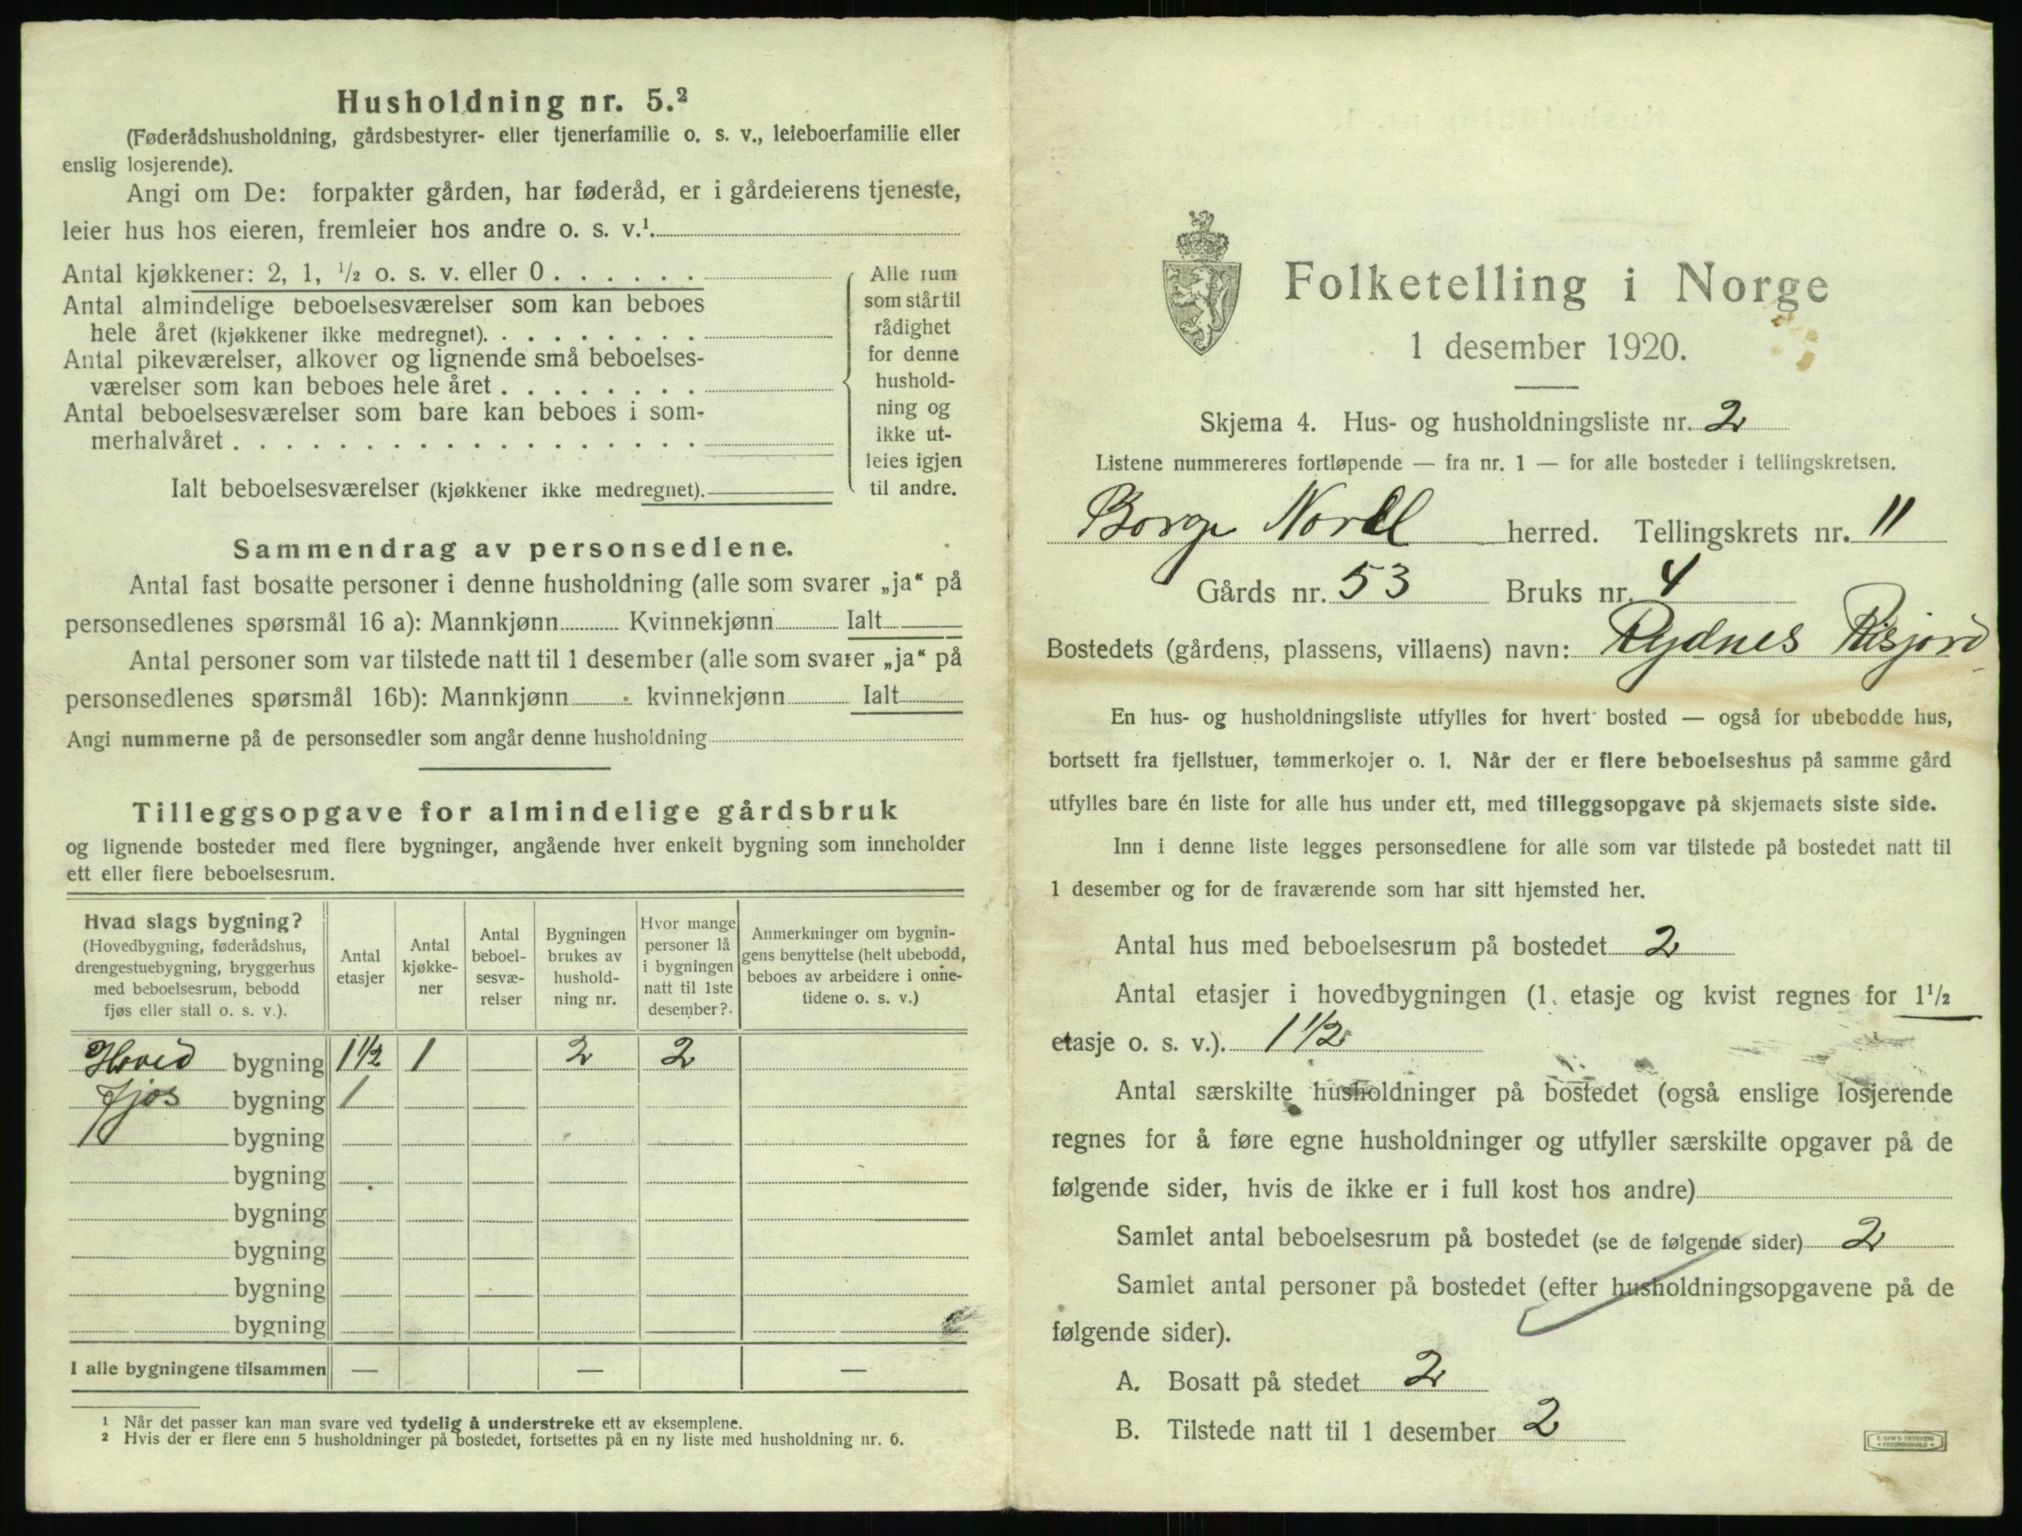 Husholdning nr. 5.²
(Føderådshusholdning, gårdsbestyrer- eller tjenerfamilie o. s. v., leieboerfamilie eller
enslig losjerende).
Angi om De: forpakter gården, har føderåd, er i gårdeierens tjeneste,
leier hus hos eieren, fremleier hos andre o. s. v.¹
Antal kjøkkener: 2, 1, ½ o. s. v. eller 0
Antal almindelige beboelsesværelser som kan beboes
hele året (kjøkkener ikke medregnet).
Antal pikeværelser, alkover og lignende små beboelses-
værelser som kan beboes hele året
Antal beboelsesværelser som bare kan beboes i som-
merhalvåret
Ialt beboelsesværelser (kjøkkener ikke medregnet).
Alle rum
som står til
rådighet
for denne
hushold-
ning og
ikke ut-
leies igjen
til andre.
Sammendrag av personsedlene.
Antal fast bosatte personer i denne husholdning (alle som svarer „ja“ på
personsedlenes spørsmål 16 a): Mannkjønn Kvinnekjønn Ialt
Antal personer som var tilstede natt til 1 desember (alle som svarer „ja“ på
personsedlenes spørsmål 16b): Mannkjønn kvinnekjønn Ialt
Angi nummerne på de personsedler som angår denne husholdning
Tilleggsopgave for almindelige gårdsbruk
og lignende bosteder med flere bygninger, angående hver enkelt bygning som inneholder
ett eller flere beboelsesrum.
Hvad slags bygning?
(Hovedbygning, føderådshus,
drengestuebygning, bryggerhus
med beboelsesrum, bebodd
fjøs eller stall o. s. v.).
Antal
etasjer
Antal
kjøkke-
ner
Antal
beboel-
sesvæ-
relser
Bygningen
brukes av
hushold-
ning nr.
Hvor mange
personer lå
i bygningen
natt til 1ste
desember?
Anmerkninger om bygnin-
gens benyttelse (helt ubebodd,
beboes av arbeidere i onne-
tidene o. s. v.)
Hoved bygning 1½ 1 2 2
Fjøs bygning 1
bygning
bygning
bygning
bygning
bygning
bygning
I alle bygningene tilsammen — — —
¹ Når det passer kan man svare ved tydelig å understreke ett av eksemplene.
² Hvis der er flere enn 5 husholdninger på bostedet, fortsettes på en ny liste med husholdning nr. 6.
Folketelling i Norge
1 desember 1920.
Skjema 4. Hus- og husholdningsliste nr. 2
Listene nummereres fortløpende — fra nr. 1 — for alle bosteder i tellingskretsen.
Borge Nordl herred. Tellingskrets nr. 11
Gårds nr. 53 Bruks nr. 4
Bostedets (gårdens, plassens, villaens) navn: Rydnes Risjord
En hus- og husholdningsliste utfylles for hvert bosted — også for ubebodde hus,
bortsett fra fjellstuer, tømmerkojer o. l. Når der er flere beboelseshus på samme gård
utfylles bare én liste for alle hus under ett, med tilleggsopgave på skjemaets siste side.
Inn i denne liste legges personsedlene for alle som var tilstede på bostedet natt til
1 desember og for de fraværende som har sitt hjemsted her.
Antal hus med beboelsesrum på bostedet 2
Antal etasjer i hovedbygningen (1. etasje og kvist regnes for 1½
etasje o. s. v.). 1½
Antal særskilte husholdninger på bostedet (også enslige losjerende
regnes for å føre egne husholdninger og utfyller særskilte opgaver på de
følgende sider, hvis de ikke er i full kost hos andre)
Samlet antal beboelsesrum på bostedet (se de følgende sider) 2
Samlet antal personer på bostedet (efter husholdningsopgavene på de
følgende sider).
A. Bosatt på stedet 2
B. Tilstede natt til 1 desember 2